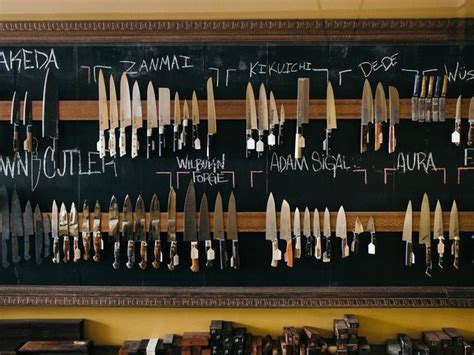 AKEDA ZANMAI KIKUICHI DEDE WÜS
WN CUTLER WILBURN ADAM SIGAL AURA
FORGE